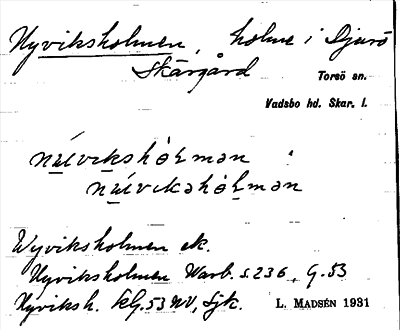 Nyviksholmen, holme i Djurö
Skärgård
Torsö sn.
Vadsbo hd. Skar. l.
Nyviksholmen ek.
Nyviksholmen Warb. s. 236, G. 53
Nyviksh. kG. 53 NV, Sjk.
L. MADSÉN 1931